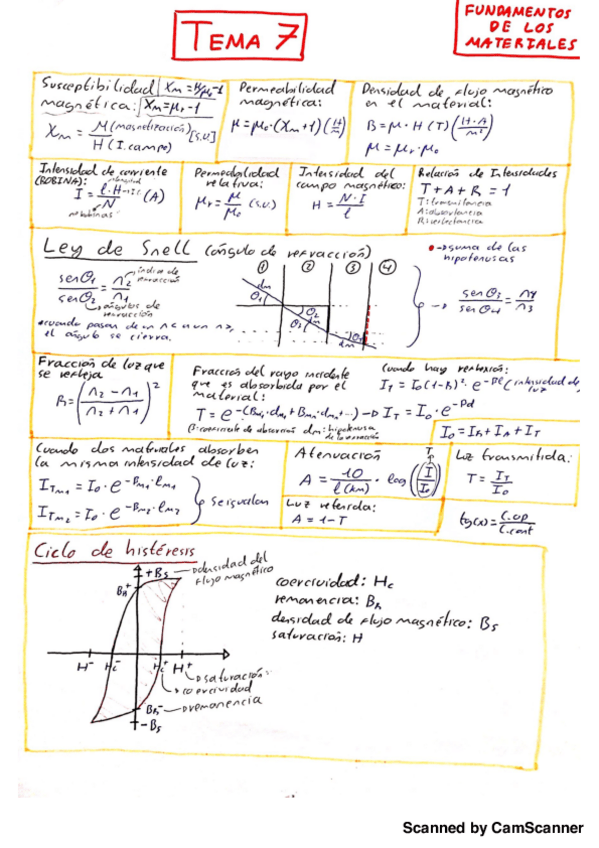 TEMA 7
FUNDAMENTOS
DE LOS
MATERIALES
Susceptibilidad
magnética: Xm = μr - 1
Xm = M (magnetización) [s.u.]
H (I. campo)
Permeabilidad
magnética:
μ = μ₀·(Xm+1) (H/m)
Densidad de flujo magnético
en el material:
B = μ · H (T) (H·A/m²)
μ = μr · μ₀
Intensidad de corriente
(BOBINA):
I = l·H/N (A)
nº bobinas
Permeabilidad
relativa:
μr = μ/μ₀ (s.u.)
Intensidad del
campo magnético:
H = N·I/l
Relación de Intensidades
T + A + R = 1
T: transmitancia
A: absorbancia
R: reflectancia
Ley de Snell (ángulo de refracción)
① ② ③ ④
senΘ₁/senΘ₂ = n₂/n₁
índice de refracción
ángulos de refracción
el ángulo se cierra.
dm Θ₁ Θ₂ Θ₂ dm Θ₃ dm
→ suma de las
hipotenusas
senΘ₃/senΘ₄ = n₄/n₃
Fracción de luz que
se refleja
R = (n₂ - n₁ / n₂ + n₁)²
Fracción del rayo incidente
que es absorbida por el
material:
T = e^-(βm₁·dm₁ + βm₂·dm₂+...) → I_T = I₀·e^-βd
β: coeficiente de absorción dm: hipotenusa
Cuando hay reflexión:
I_T = I₀(1-R)²·e^-βl (intensidad de luz
I₀ = I_R + I_A + I_T
Cuando dos materiales absorben
la misma intensidad de luz:
I_Tm₁ = I₀·e^-βm₁·lm₁
I_Tm₂ = I₀·e^-βm₂·lm₂
se igualan
Atenuación
A = 10/l(km) · log(I/I₀)
Luz referida:
A = 1 - T
Luz transmitida:
T = I_T/I₀
tg(α) = C.op/C.cont
Ciclo de histéresis
+Bs → densidad del
flujo magnético
BR⁺
H⁻ Hc⁻ Hc⁺ H⁺
→ saturación:
→ coercividad
BR⁻ → remonencia
-Bs
coercividad: Hc
remonencia: BR
densidad de flujo magnético: Bs
saturación: H
Scanned by CamScanner